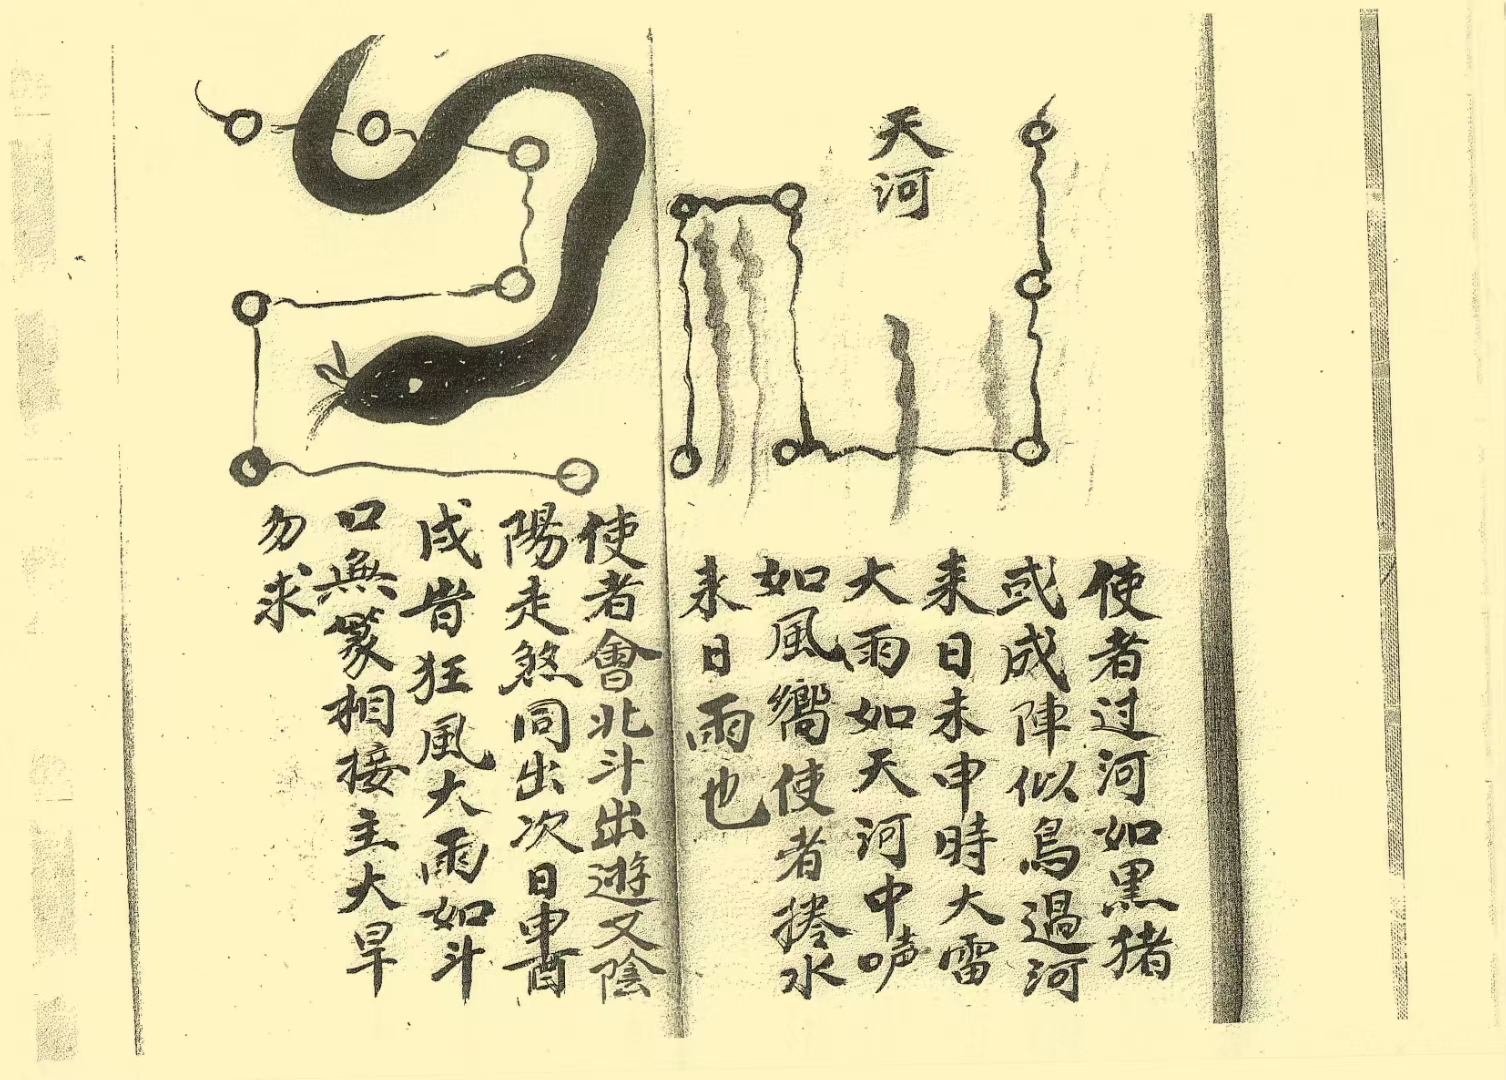 天河
使者过河如黒猪
或成陣似鳥過河
来日未申時大雷
大雨如天河中
如風嚮使者捲水
来日雨也
使者會北斗出遊又陰
陽走煞同出次日申酉
戌皆狂風大雨如斗
口無篆相接主大旱
勿求